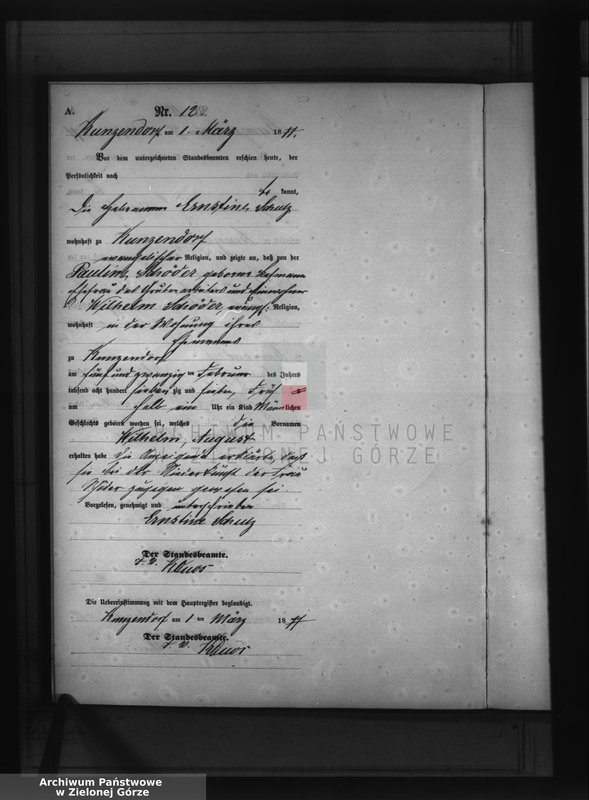 A. Nr. 12.
Kunzendorf am 1. März 1877.
Vor dem unterzeichneten Standesbeamten erschien heute, der
Persönlichkeit nach
kannt,
die Hebamme Ernstine Schulz
wohnhaft zu Kunzendorf
evangelischer Religion, und zeigte an, daß von der
Pauline Schöder geborene Lehmann
Ehefrau des Grubenarbeiters und
Wilhelm Schöder, evangl. Religion,
wohnhaft in der Wohnung ihres
Ehemannes
zu Kunzendorf
am fünf und zwanzig ten Februar des Jahres
tausend acht hundert sieben zig und sieben, Früh
um halb ein Uhr ein Kind Männlichen
Geschlechts geboren worden sei, welches die Vornamen
Wilhelm, August
erhalten habe Die Anzeigende erklärte, daß
sie bei der Niederkunft der Frau
Schöder zugegen gewesen sei.
Vorgelesen, genehmigt und unterschrieben
Ernstine Schulz
Der Standesbeamte.
Die Uebereinstimmung mit dem Hauptregister beglaubigt.
Kunzendorf am 1 ten März 1877
Der Standesbeamte.
ARCHIWUM PAŃSTWOWE
W ZIELONEJ GÓRZE
Archiwum Państwowe
w Zielonej Górze